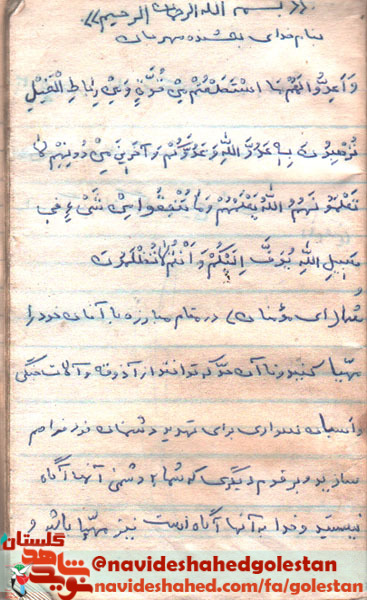 «بسم الله الرحمن الرحیم»
بنام خدای بخشنده مهربان
وَ اَعِدُّوا لَهُمْ مَا اسْتَطَعْتُمْ مِنْ قُوَّةٍ وَ مِنْ رِبَاطِ الْخَيْلِ
تُرْهِبُونَ بِهِ عَدُوَّ اللهِ وَ عَدُوَّكُمْ وَ آخَرِينَ مِنْ دُونِهِمْ لَا
تَعْلَمُونَهُمُ اللهُ يَعْلَمُهُمْ وَ مَا تُنْفِقُوا مِنْ شَیْءٍ فِی
سَبِيلِ اللهِ يُوَفَّ اِلَيْكُمْ وَ اَنْتُمْ لَا تُظْلَمُونَ
شما (ای مؤمنان) در مقام مبارزه با آنان خود را
مهیا کنید و تا آن حد که توانید از آذوقه و آلات جنگی
و اسبان سواری برای تهدید دشمنان خود فراهم
سازید و بر قوم دیگری که شما بر دشمنی آنها آگاه
نیستید و خدا به آنها آگاه است نیز مهیا باشید و
نوید شاهد گلستان
@navideshahedgolestan
navideshahed.com/fa/golestan